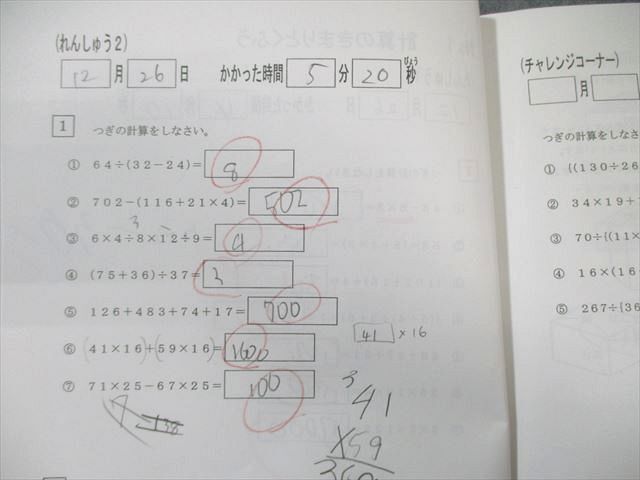 (れんしゅう2)
12月26日 かかった時間5分20秒
びょう
1 つぎの計算をしなさい。
① 64÷(32-24)=8
② 702-(116+21×4)=502
3
③ 6×4÷8×12÷9=4
④ (75+36)÷37=3
⑤ 126+483+74+17=700
41×16
⑥ (41×16)+(59×16)=1600
⑦ 71×25-67×25=100
3
41
×59
(チャレンジコーナー)
月
① {(130÷26
② 34×19+
③ 70÷{(11×
④ 16×(16
⑤ 267÷{36